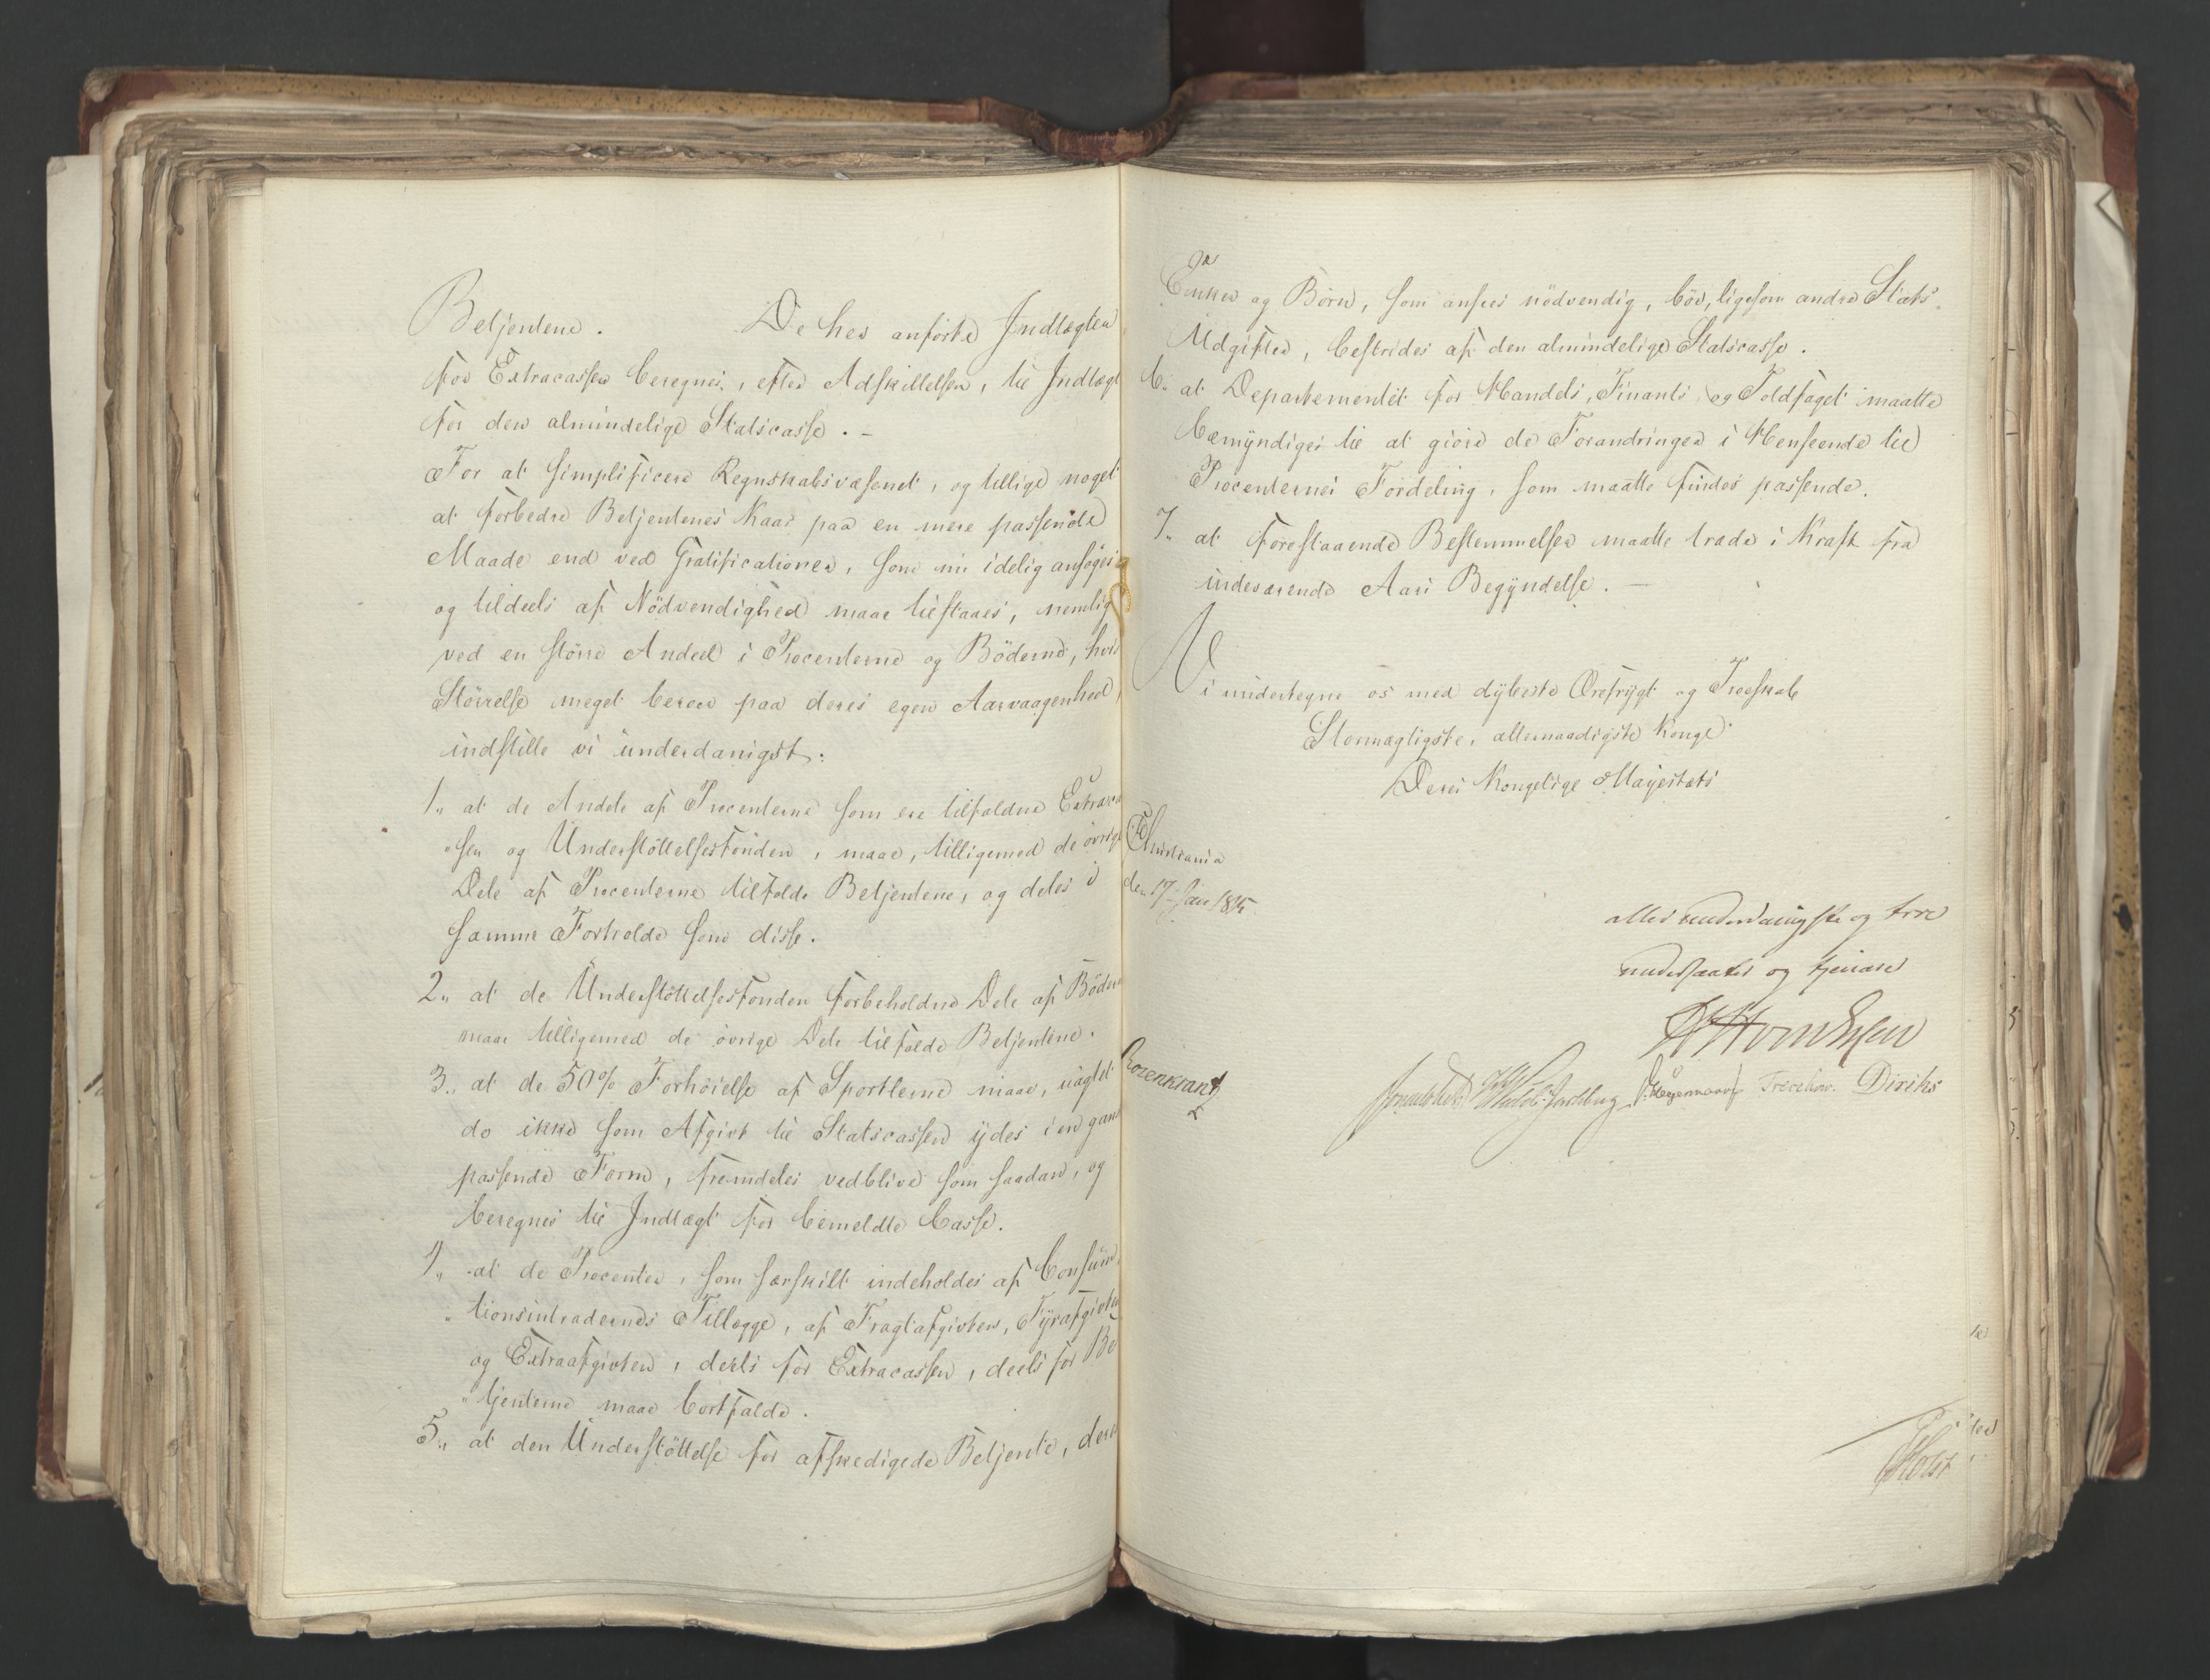 Betjentene. De her anförte Indtægter
for Extracassen beregnes, efter Adskillelsen, til Indtægt
for den almindelige Statscasse. –
For at simplificere Regnskabsvæsenet, og tillige noget
at forbedre Betjentenes Kaar paa en mere passende
Maade end ved Gratificationer, som nu idelig ansöges
og tildeels af Nödvendighed maae tilstaaes, nemlig
ved en större Andeel i Procenterne og Böderne, hvis
Störrelse meget beroer paa deres egen Aarvaagenhed,
indstille vi underdanigst:
1., at de Andele af Procenterne som ere tilfaldne Extracas
sen og Understöttelsesfonden, maae, tilligemed de övrige
Dele af Procenterne tilfalde Betjentene, og deles i
samme Forholde som disse.
2., at de Understöttelsesfonden forbeholdne Dele af Böderne
maae tilligemed de övrige Dele tilfalde Betjentene.
3., at de 50% Forhöielse af Sportlerne maae, uagtet
de ikke som Afgivt til Statscassen ydes i en gansk
passende Form, fremdeles vedblive som saadan, og
beregnes til Indtægt for bemeldte Casse.
4., at de Procenter, som særskilt indeholdes af Consum
tionsintradernes Tillægge, af Fragtafgivten, Fyrafgivten
og Extraafgivten, deels for Extracassen, deels for Be
tjenterne maae bortfalde.
5., at den Understöttelse for afskedigede Betjente, deres
Enker og Börn, som ansees nödvendig, bör, ligesom andre Stats
Udgifter, bestrides af den almindelige Statscasse.
6., at Departementet for Handels, Finants og Toldfaget maatte
bemyndiges til at giöre de Forandringer i Henseende til
Procenternes Fordeling, som maatte findes passende.
7., at forestaaende Bestemmelser maatte træde i Kraft fra
indeværende Aars Begyndelse. –
Vi undertegne os med dybeste Ærefrygt og Troeskab
Stormægtigste, allernaadigste Konge
Deres Kongelige Mayestæts
Christiania
den 17 Jan 1815
allerunderdanigste og troe
undersaatter og tjenere
Rosenkrantz
Sommerhielm Motzfeldt Hegermann Treschow. Diriks
Holst